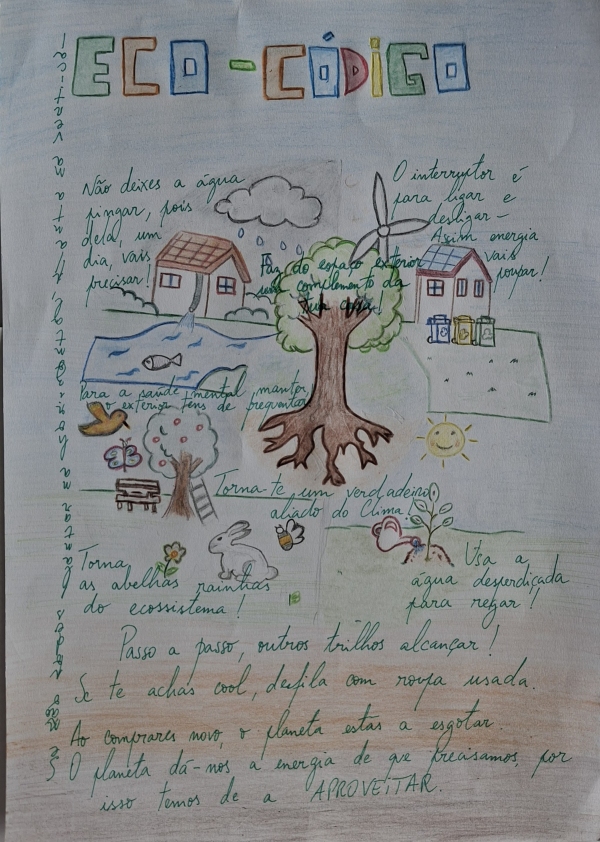 ECO-CÓDIGO
Não deixes a água
pingar, pois
dela, um
dia, vais
precisar!
O interruptor é
para ligar e
desligar -
Assim energia
vais
poupar!
Faz do espaço exterior
um complemento da
tua
Para a saúde mental manter,
o exterior tens de frequentar
Torna-te um verdadeiro
aliado do Clima!
Torna
as abelhas rainhas
do ecossistema!
Usa a
água desperdiçada
para regar!
Passo a passo, outros trilhos alcançar!
Se te achas cool, desfila com roupa usada.
Ao comprares novo, o planeta estas a esgotar.
O planeta dá-nos a energia de que precisamos, por
isso temos de a APROVEITAR.